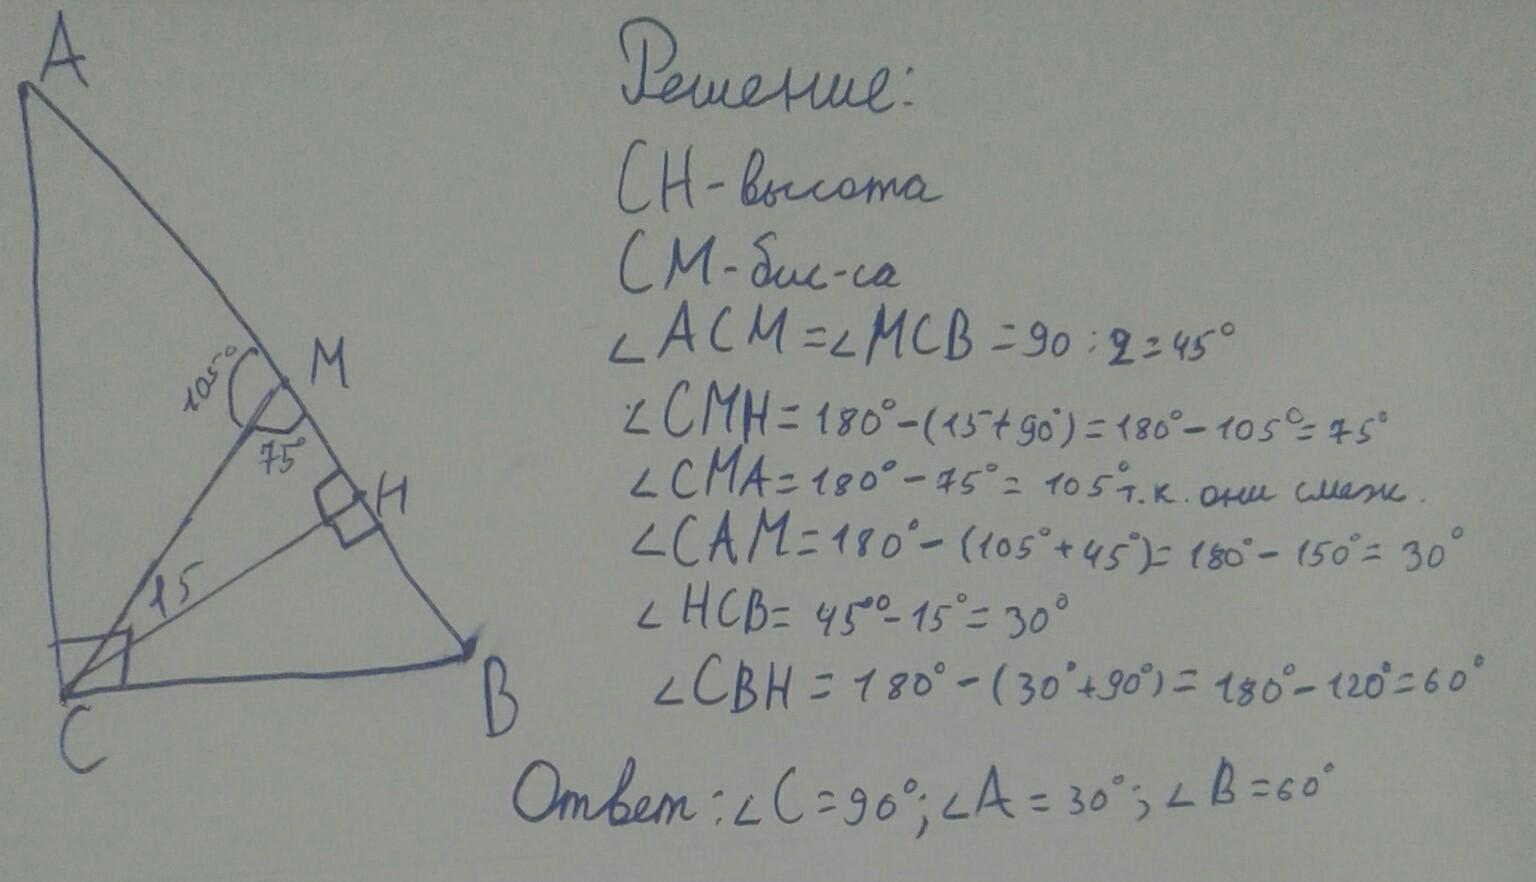 A
M
105°
75°
H
15
C
B
Решение:
CH-высота
CM-бис-са
∠ACM=∠MCB=90:2=45°
∠CMH=180°-(15+90°)=180°-105°=75°
∠CMA=180°-75°=105° т.к. они смеж.
∠CAM=180°-(105°+45°)=180°-150°=30°
∠HCB=45°-15°=30°
∠CBH=180°-(30°+90°)=180°-120°=60°
Ответ:∠C=90°;∠A=30°;∠B=60°